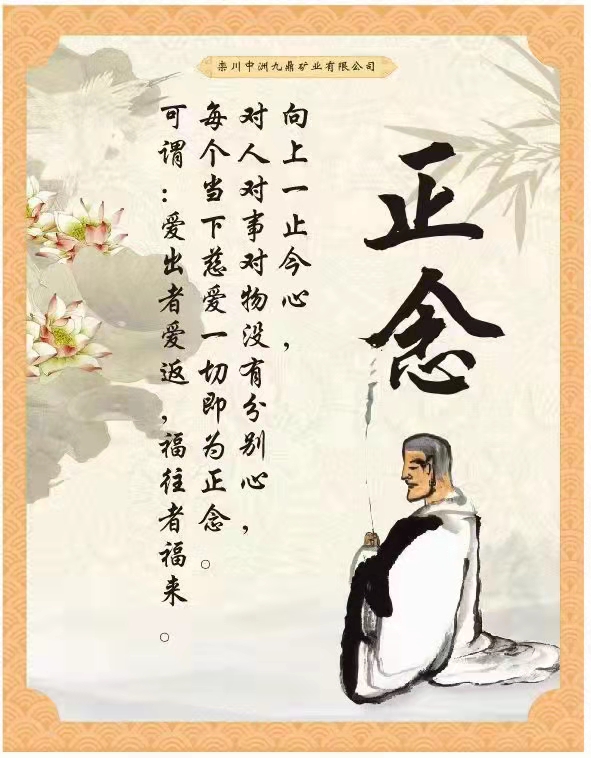 栾川中洲九鼎矿业有限公司
正念
向上一止今心，
对人对事对物没有分别心，
每个当下慈爱一切即为正念。
可谓：爱出者爱返，福往者福来。